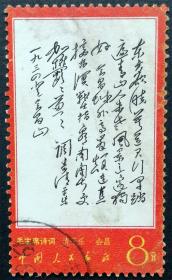 东方欲晓莫道君行早踏
遍青山人未老风景这边独
好会昌城外高峰颠连直
接东溟战士指看南粤更
加郁郁葱葱 调寄清平乐
一九三四年
毛主席诗词 清平乐 会昌
中国人民邮政 8分